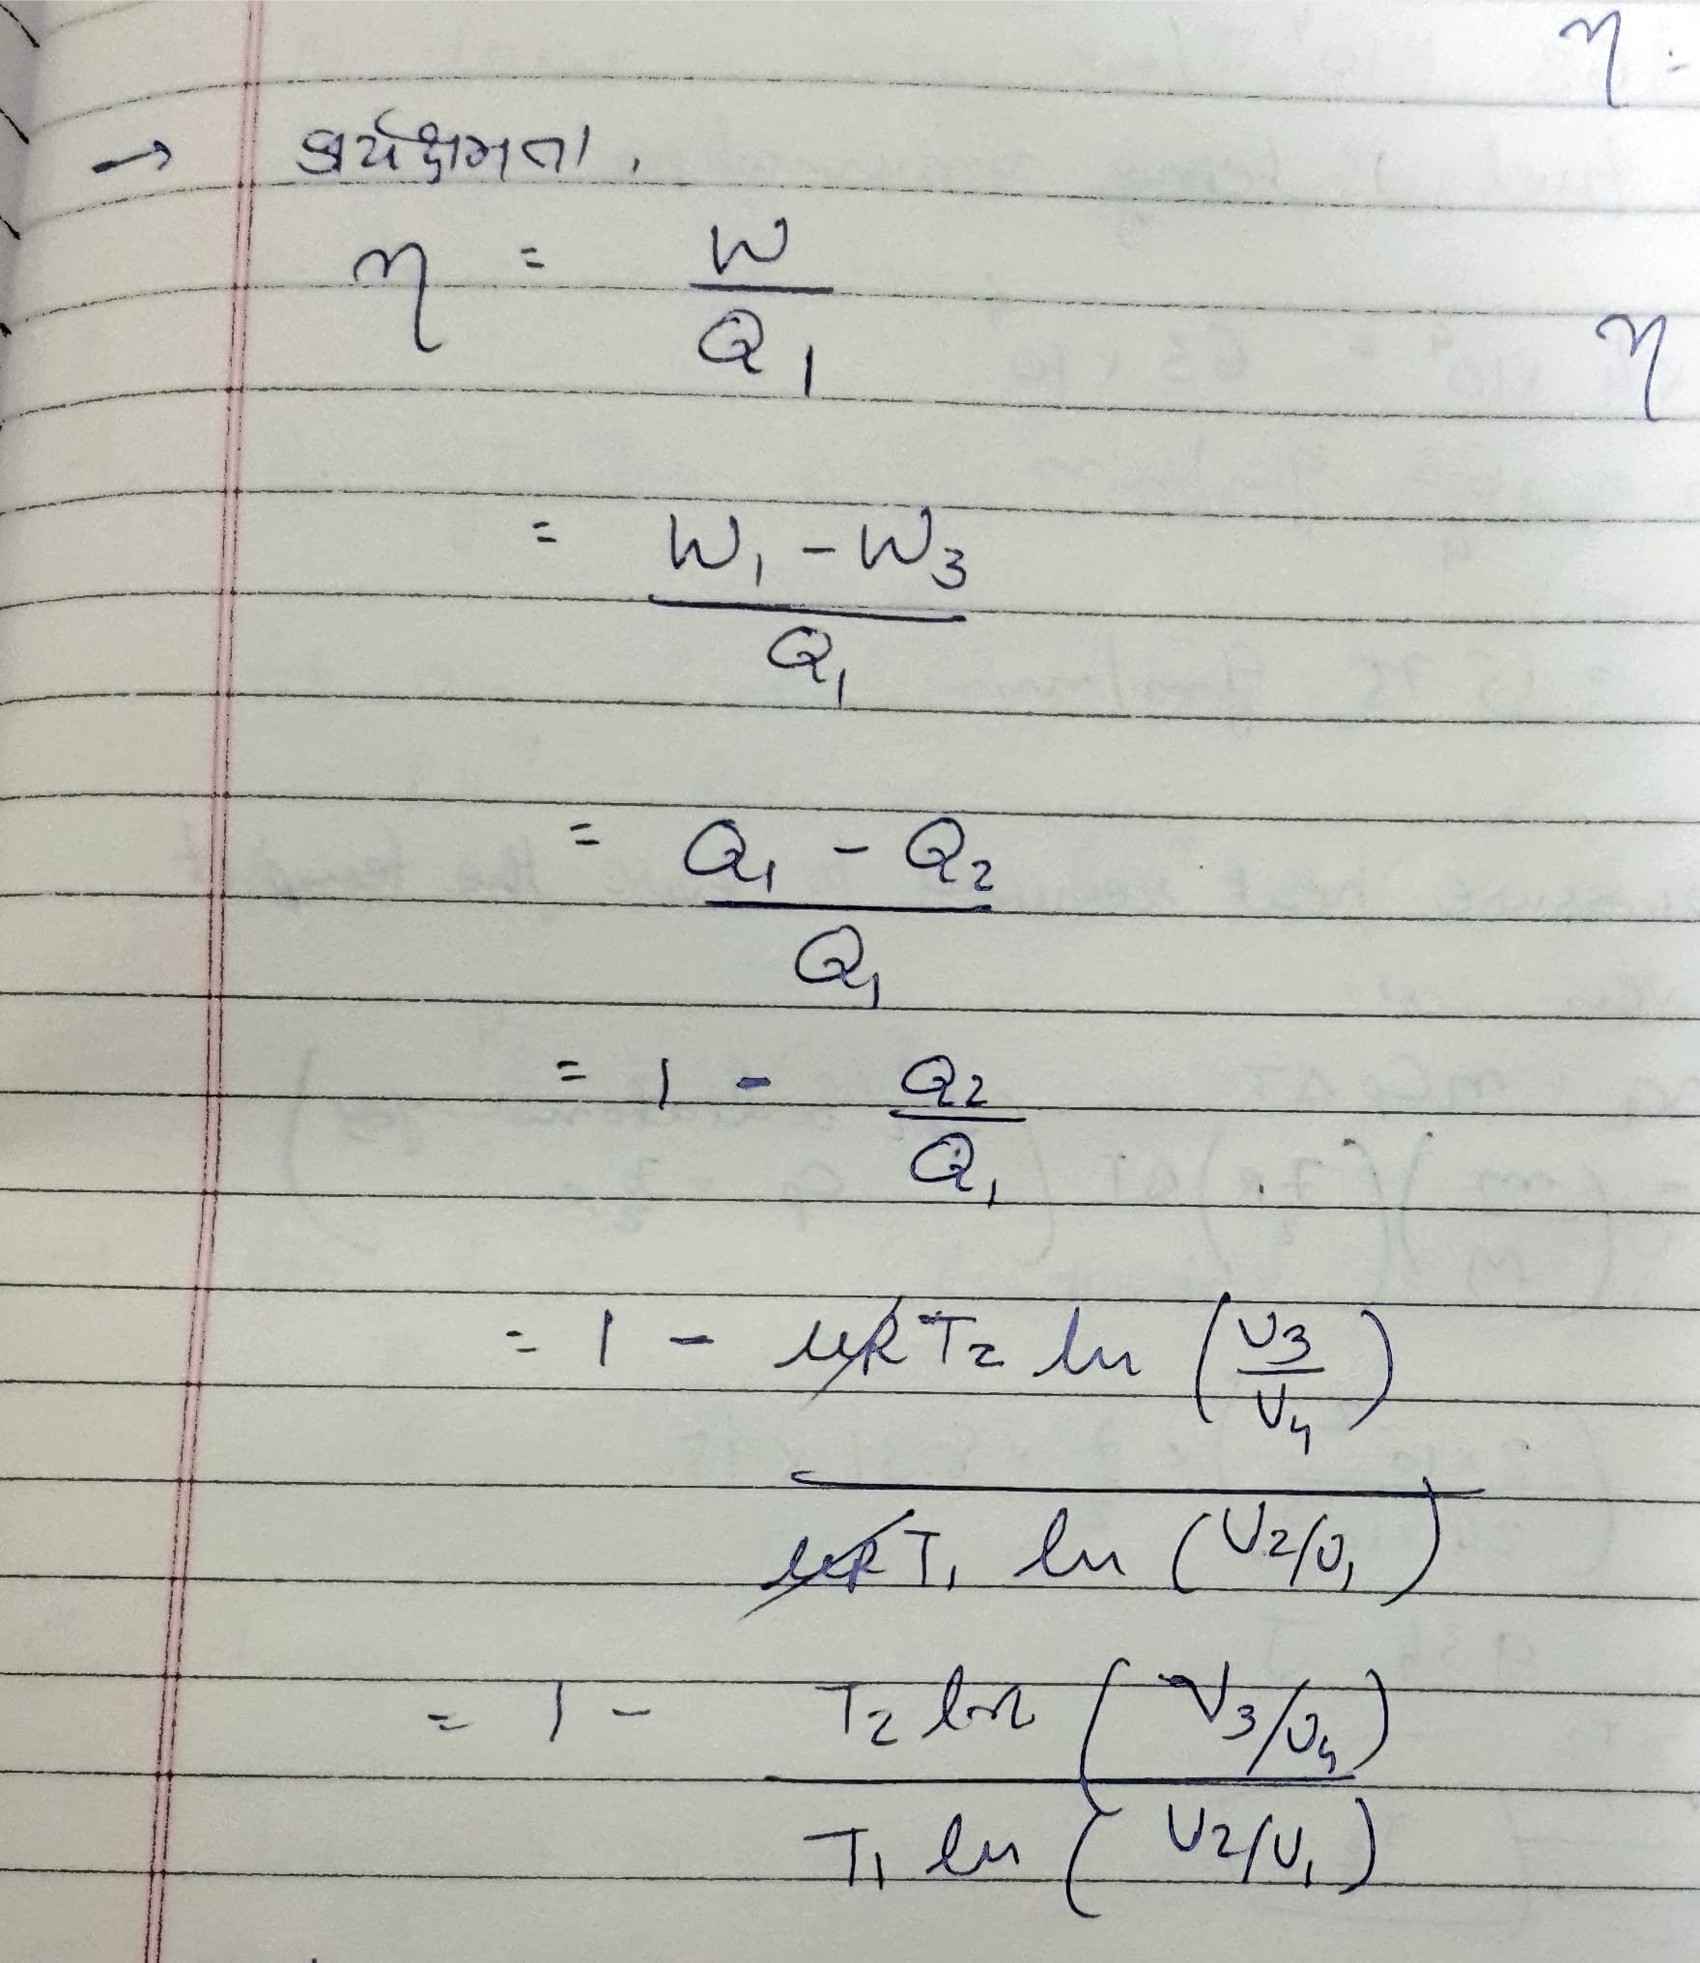 η =
→ कार्यक्षमता,
η = W / Q1
η
= W1 - W3 / Q1
= Q1 - Q2 / Q1
= 1 - Q2 / Q1
= 1 - μRT2 ln (V3 / V4)
μRT1 ln (V2/V1)
= 1 - T2 ln (V3/V4)
T1 ln (V2/V1)